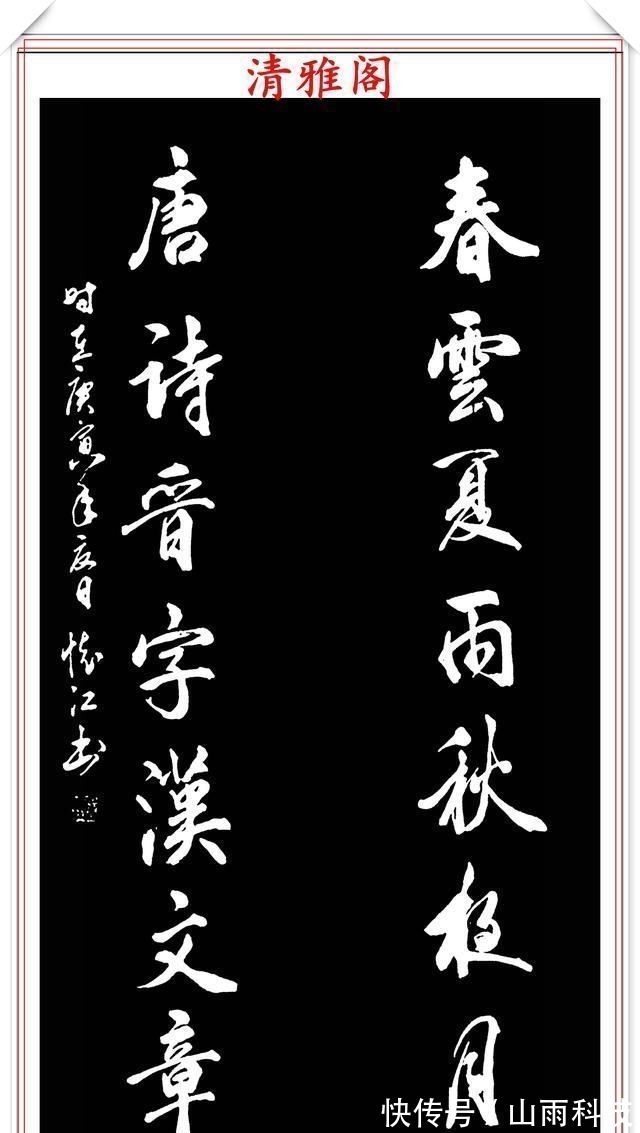 清雅阁
春雲夏雨秋夜月
唐诗晋字漢文章
时在庚寅年夏月 怀江书
快传号 / 山雨科技